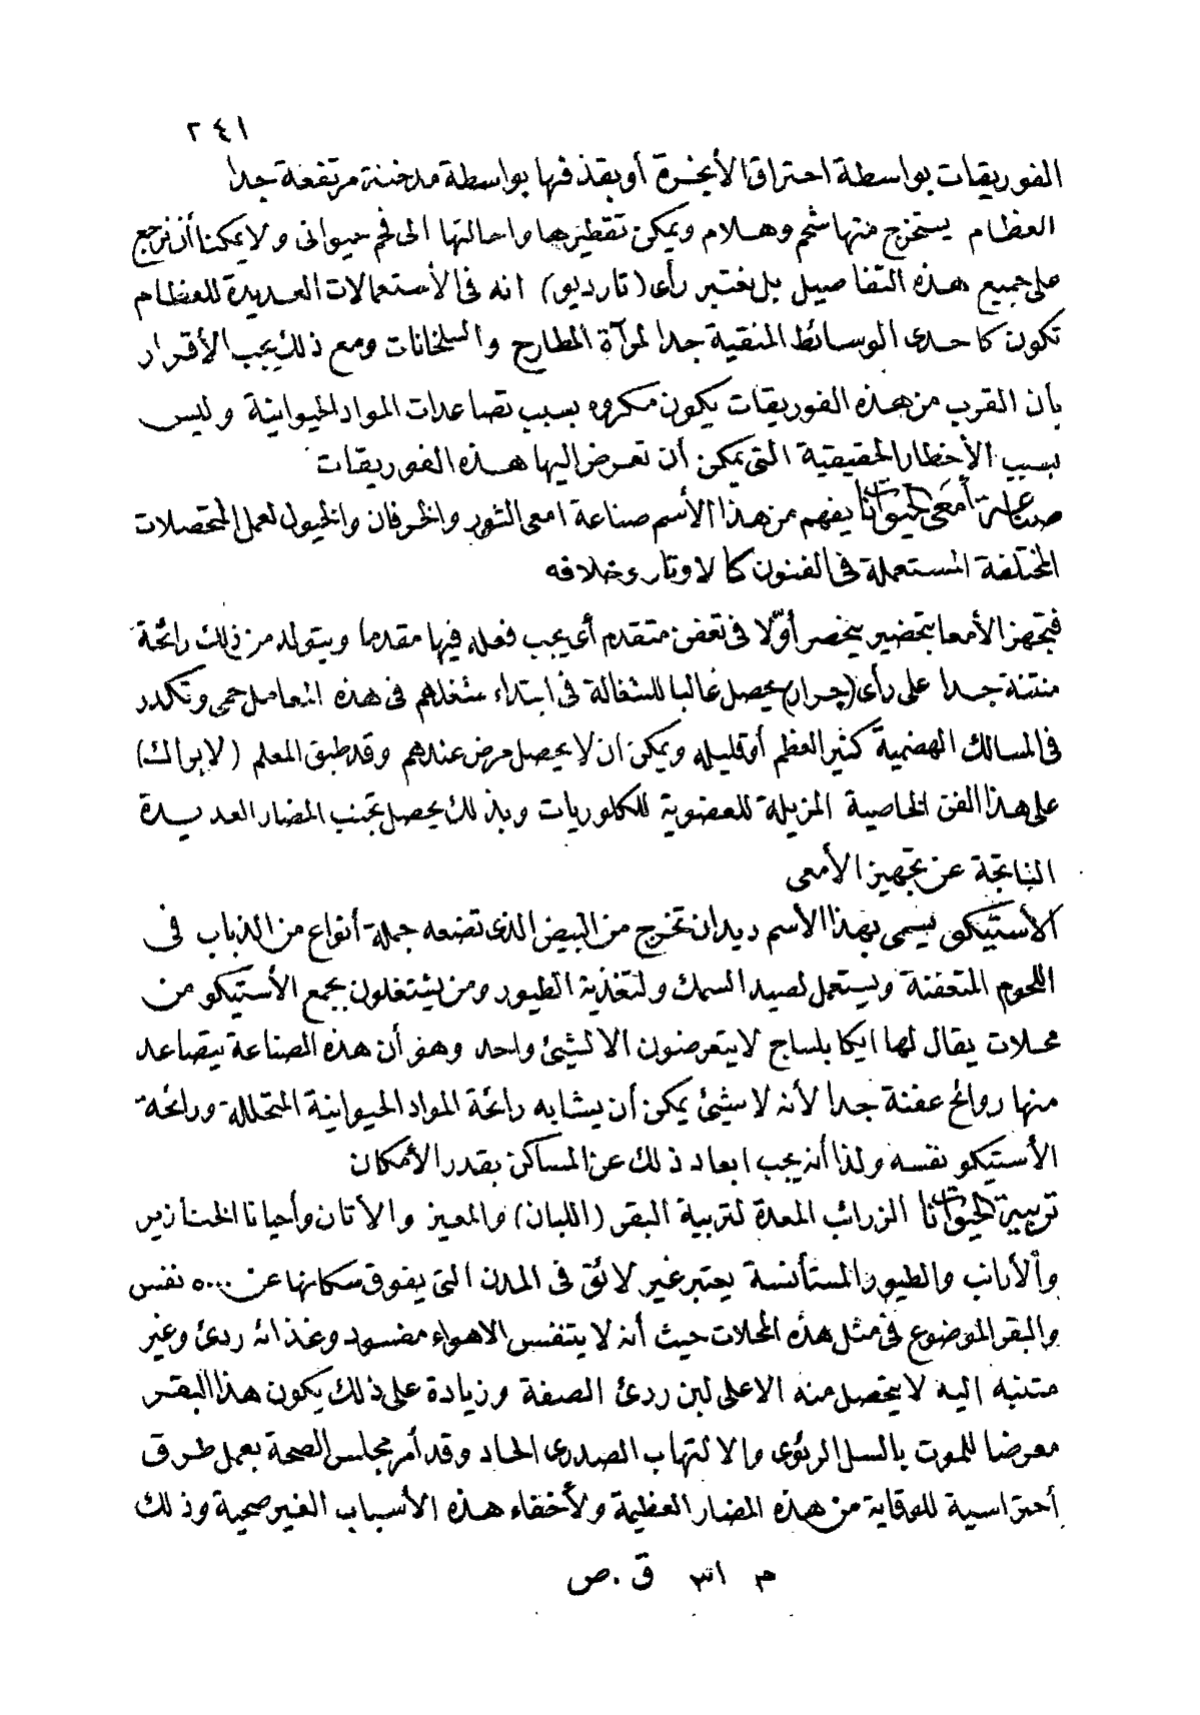 ٢٤١
الفوريقات بواسطة احتراق الأبخرة أو بقذفها بواسطة مدخنة مرتفعة جدا
العظام يستخرج منها شحم وهلام ويمكن تقطيرها واحالتها الى فحم حيوانى ولا يمكننا أن نرجع
على جميع هذه التفاصيل بل نعتبر رأى (تارديو) انه فى الأستعمالات العديدة للعظام
تكون كاحدى الوسائط المنقية جدا لمرآة المطارح والسلخانات ومع ذلك يجب الأقرار
بأن القرب من هذه الفوريقات يكون مكروه بسبب تصاعدات المواد الحيوانية وليس
بسبب الأخطار الحقيقية التى يمكن أن تعرض اليها هذه الفوريقات
صناعة أمعى الحيوانات يفهم من هذا الأسم صناعة امعى الثور والخرفان والخيول لعمل المتحصلات
المختلفة المستعملة فى الفنون كالاوتار وخلافه
فتجهز الأمعا بتحضير ينحصر أوّلا فى تعفن متقدم أى يجب فعله فيها مقدما ويتولد من ذلك رائحة
منتنة جدا على رأى (جرار) يحصل غالبا للشغالة فى ابتداء شغلهم فى هذه المعامل حمى وتكدر
فى المسالك الهضمية كثير العظم أو قليله ويمكن ان لا يحصل مرض عندهم وقد طبق المعلم (لابراك)
على هذا الفن الخاصية المزيلة للعضوية للكلوريات وبذلك يحصل تجنب المضار العديدة
الناتجة عن تجهيز الأمعى
الأستيكو يسمى بهذا الأسم ديدان تخرج من البيض الذى تضعه جملة أنواع من الذباب فى
اللحوم المتعفنة ويستعمل لصيد السمك ولتغذية الطيور ومن يشتغلون بجمع الأستيكو من
محلات يقال لها ايكابلساج لا يتعرضون الا لشيئ واحد وهو أن هذه الصناعة يتصاعد
منها روائح عفنة جدا لأنه لا شيئ يمكن أن يشابه رائحة المواد الحيوانية المتحللة ورائحة
الأستيكو نفسه ولذا أنه يجب ابعاد ذلك عن المساكن بقدر الأمكان
تربية الحيوانات الزرائب المعدة لتربية البقر (اللبان) والمعيز والأتان وأحيانا الخنأزير
والأرانب والطيور المستأنسة يعتبر غير لائق فى المدن التى يفوق سكانها عن ٥٠٠٠ نفس
والبقر الموضوع فى مثل هذه المحلات حيث أنه لا يتنفس الا هواء مفسود وغذائه ردئ وغير
متنبه اليه لا يتحصل منه الا على لبن ردئ الصفة وزيادة على ذلك يكون هذا البقر
معرضا للموت بالسل الرئوى والالتهاب الصدرى الحاد وقد أمر مجلس الصحة بعمل طرق
أحتراسية للوقاية من هذه المضار العظيمة ولأخفاء هذه الأسباب الغير صحية وذلك
م ٣١ ق . ص